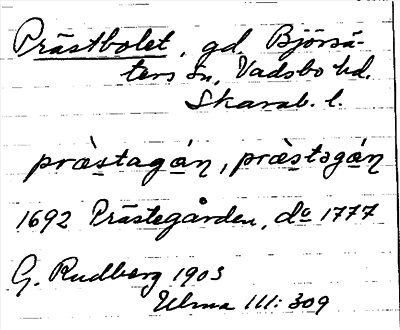 Prästbolet, gd Björsä-
ters sn, Vadsbo hd.
Skarab. l.
præ̀stagán, præ̀stəgáṇ
1692 Prästegården, do 1777
G. Rudberg 1903
Ulma 111:309